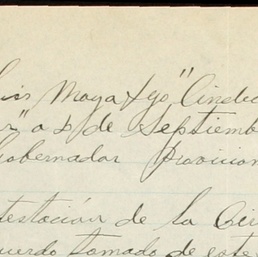 Luis Moya y yo "Cinclu
r" a 2 de Septiemb
Gobernador Provicion
testación de la Cir
uerdo tomado de este